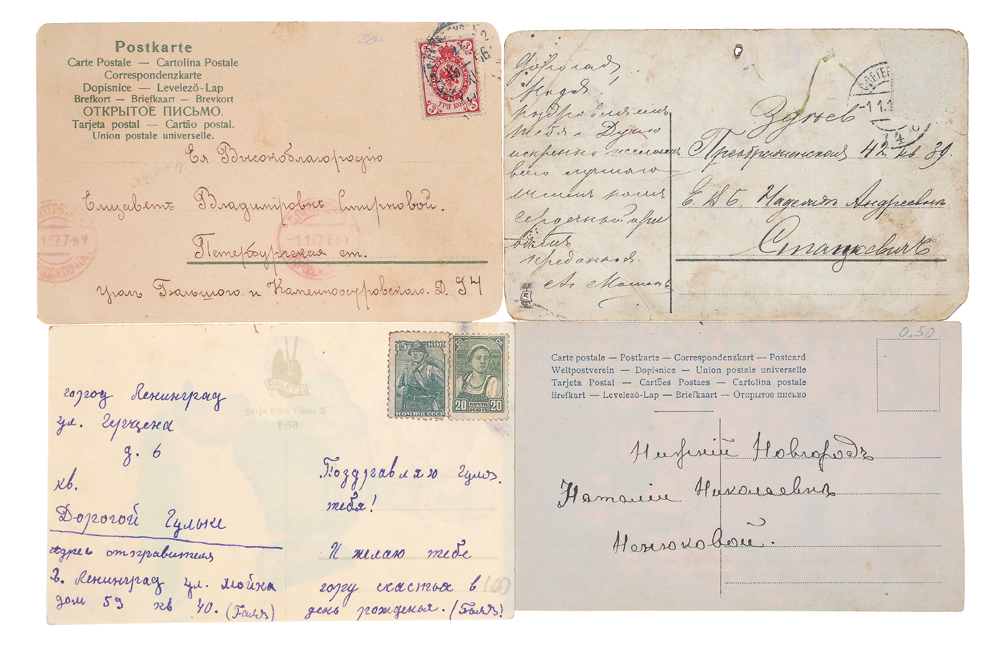 20-
Postkarte
Carte Postale — Cartolina Postale
Correspondenzkarte
Dopisnice — Levelező-Lap
Brefkort — Briefkaart — Brevkort
ОТКРЫТОЕ ПИСЬМО.
Tarjeta postal — Cartão postal.
Union postale universelle.
3 3
ТРИ КОП
Ея Высокоблагородію
Елизаветѣ Владимировнѣ Смирновой.
Петербургская ст.
уголъ Большого и Каменноостровскаго. Д. 94
1 1 07. 7-8 V
Дорогая
Надя!
поздравляемъ
тебя и Дулю
искренно желаемъ
всего лучшаго
сердечный при
преданная
1.1.1
4
Здѣсь
Преображенская 42 кв 39.
Е. В Б. Надеждѣ Андреевнѣ
Станкевичъ
город Ленинград
ул. Герцена
д. 6
кв.
Дорогой Гульке
адрес отправителя
г. Ленинград ул. Мойка
дом 59 кв 40. (Галя)
Sarja-Uusi Vuosi 2.
1:50
15 КОП
ПОЧТА СССР
20 ПОЧТА СССР 20
Поздравляю Гуля
тебя!
И желаю тебе
гору счастья в
день рожденья. (Галя!)
100
0.50
Carte postale — Postkarte — Correspondenzkart — Postcard
Weltpostverein — Dopisnice — Union postale universelle
Tarjeta Postal — Cartões Postaes — Cartolina postale
Brefkart — Levelező-Lap — Briefkaart — Открытое письмо
Нижній Новгородъ
Наталіи Николаевнѣ
Ненюковой.